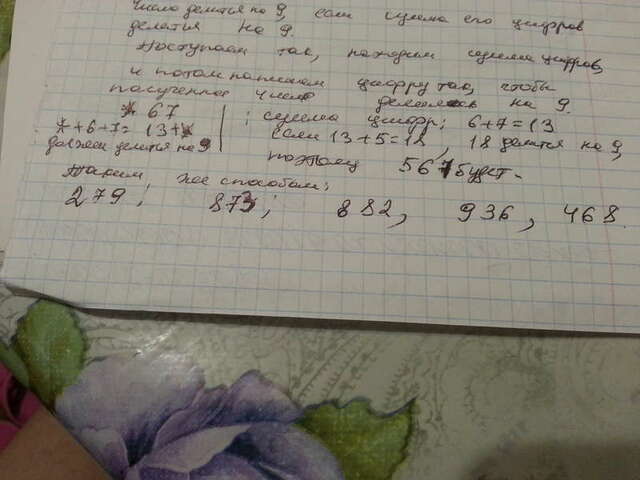 Число делится на 9, если сумма его цифров
делится на 9.
Поступаем так, находим сумма цифров,
и потом напишем цифру так, чтобы
полученное число делилось на 9.
*67 ; сумма цифр: 6+7=13
*+6+7=13+* если 13+5=18, 18 делится на 9,
должен делится на 9 поэтому 567 будет.
Таким же способом:
279; 873; 882, 936, 468.